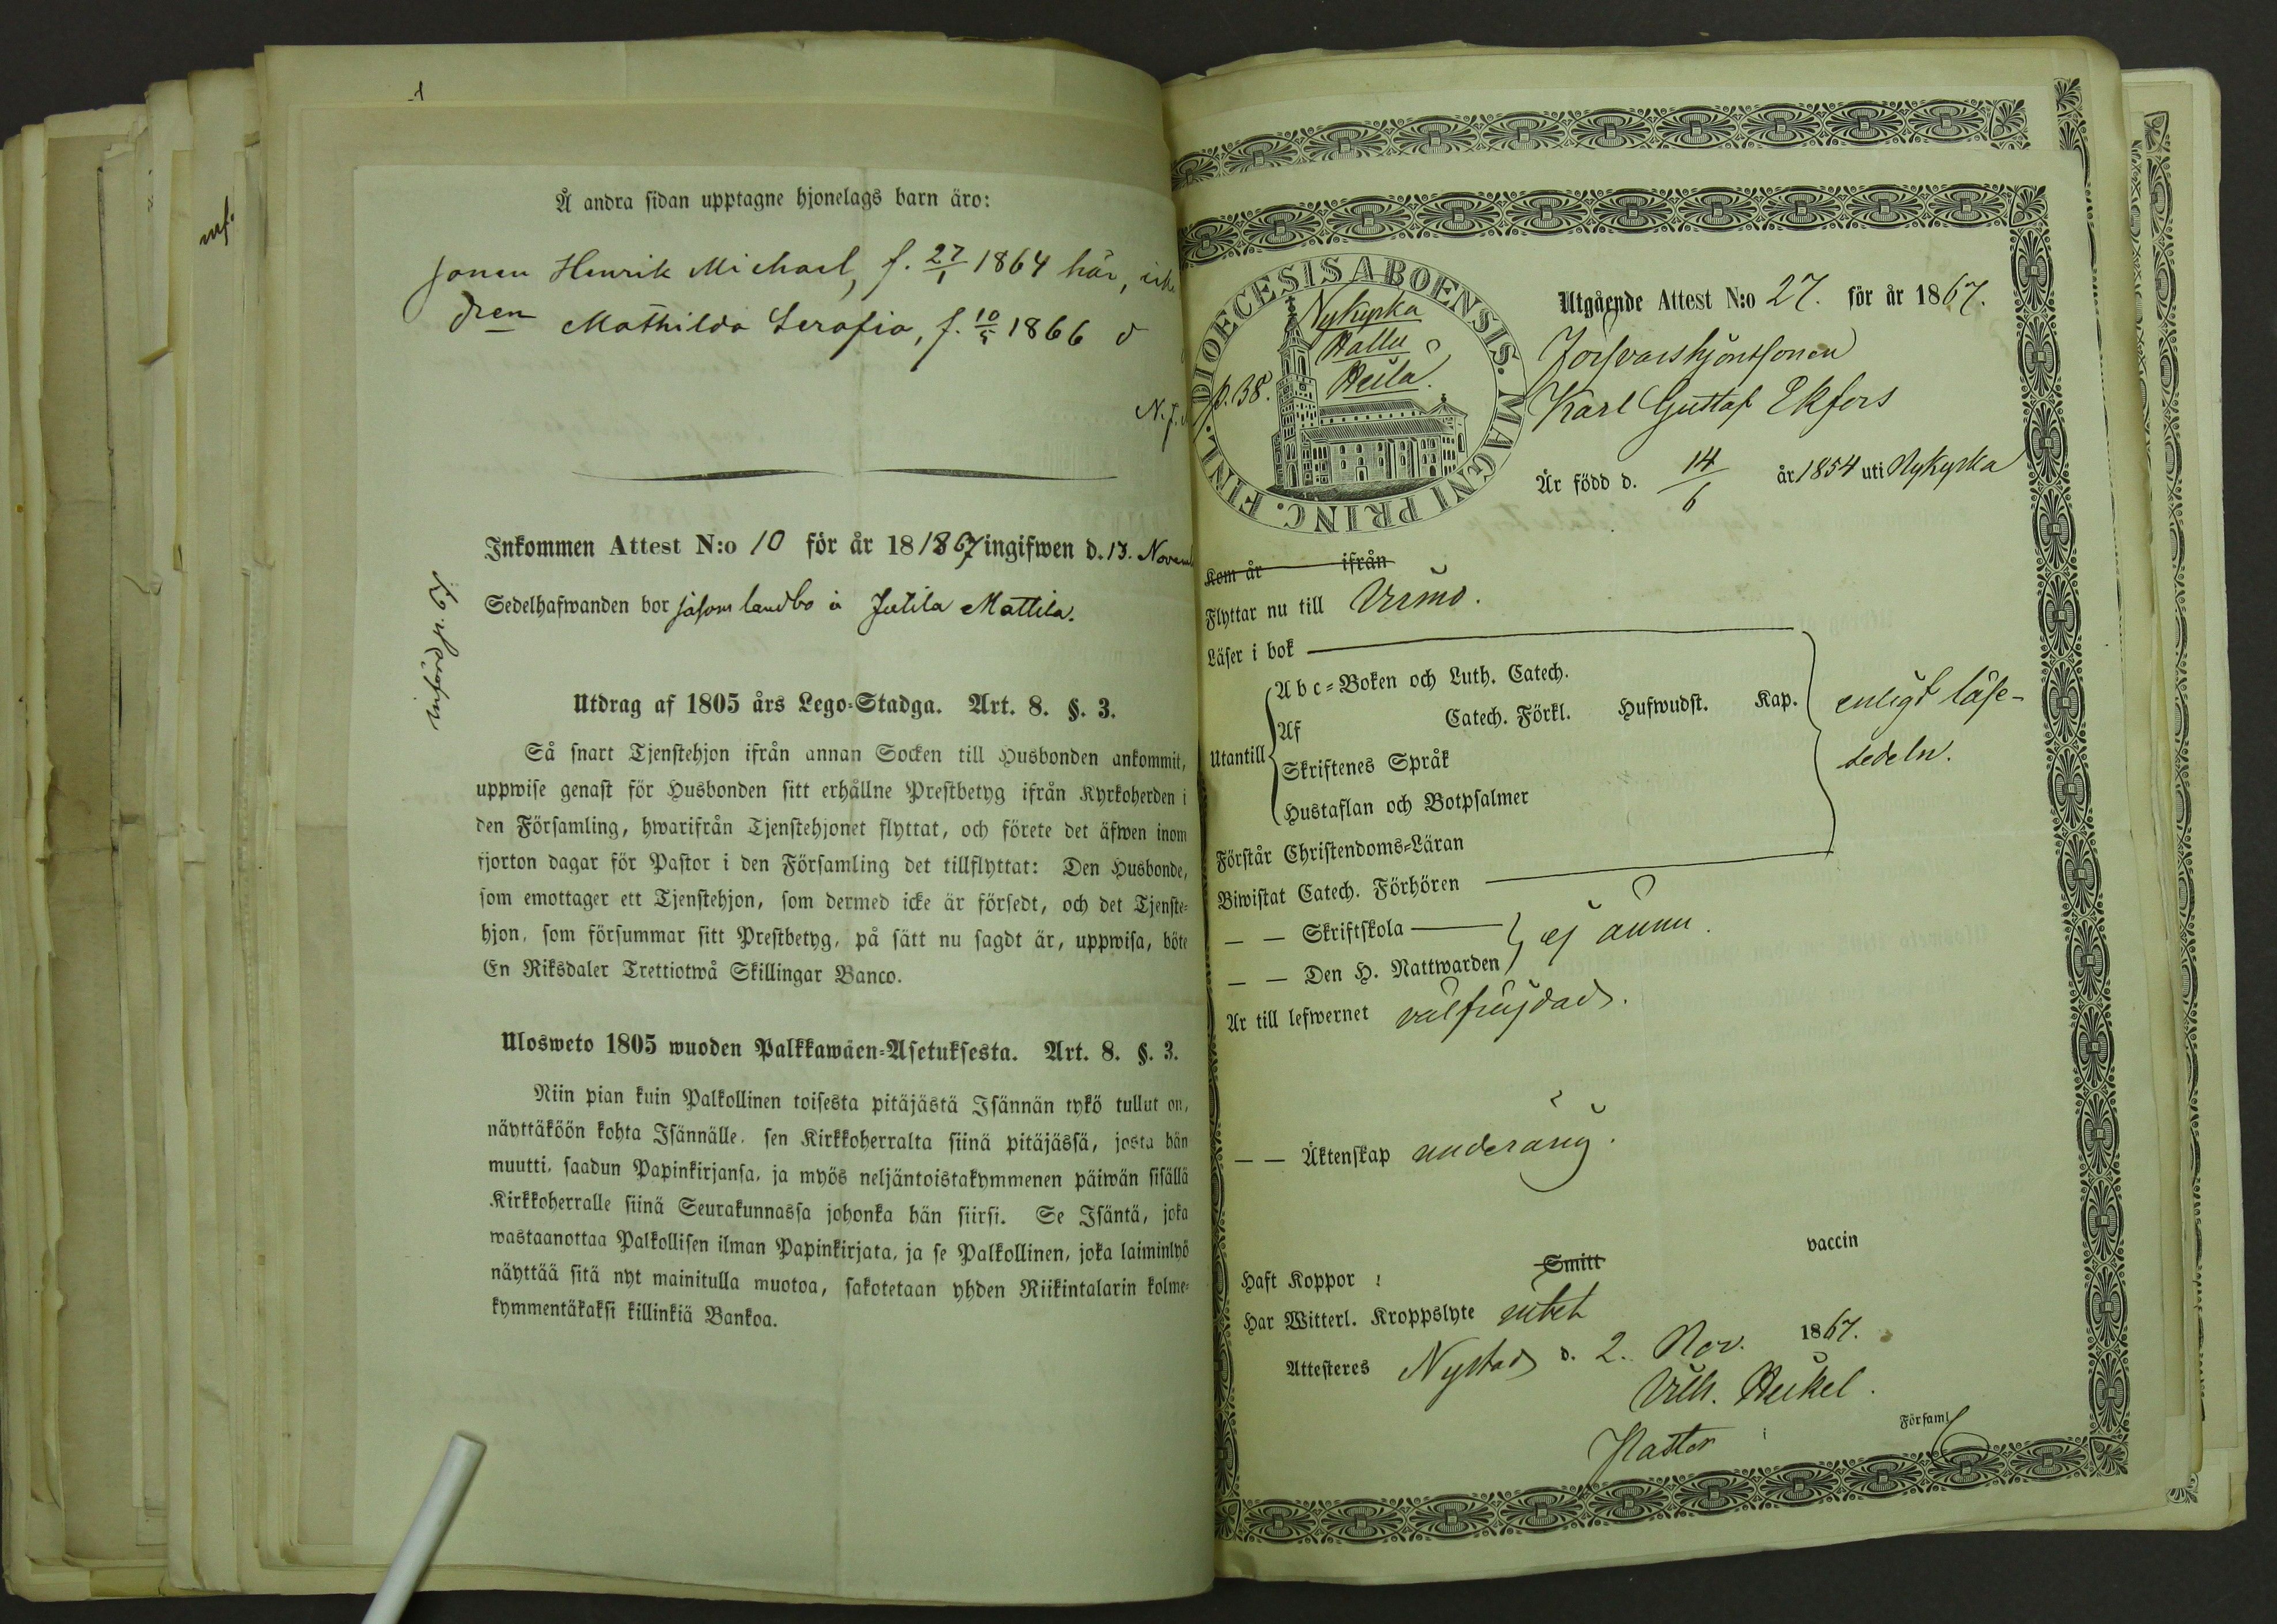 Å andra sidan upptagne hjonelags barn äro:
sonen Henrik Michael, f. 27/1 1864 här,
dren Mathilda Serafia, f. 10/5 1866 d
N. f.
Inkommen Attest N:o 10 för år 18 1867 ingifwen d. 13. Novemb
Sedelhafwanden bor såsom landbo å Jutila Mattila.
införd p. 67
Utdrag af 1805 års Lego-Stadga. Art. 8. §. 3.
Så snart Tjenstehjon ifrån annan Socken till Husbonden ankommit,
uppwise genast för Husbonden sitt erhållne Prestbetyg ifrån Kyrkoherden i
den Församling, hwarifrån Tjenstehjonet flyttat, och förete det äfwen inom
fjorton dagar för Pastor i den Församling det tillflyttat: Den Husbonde,
som emottager ett Tjenstehjon, som dermed icke är försedt, och det Tjenste-
hjon, som försummar sitt Prestbetyg, på sätt nu sagdt är, uppwisa, böte
En Riksdaler Trettiotwå Skillingar Banco.
Ulosweto 1805 wuoden Palkkawäen-Asetuksesta. Art. 8. §. 3.
Niin pian kuin Palkollinen toisesta pitäjästä Isännän tykö tullut on,
näyttäköön kohta Isännälle, sen Kirkkoherralta siinä pitäjässä, josta hän
muutti, saadun Papinkirjansa, ja myös neljäntoistakymmenen päiwän sisällä
Kirkkoherralle siinä Seurakunnassa johonka hän siirsi. Se Isäntä, joka
wastaanottaa Palkollisen ilman Papinkirjata, ja se Palkollinen, joka laiminlyö
näyttää sitä nyt mainitulla muotoa, sakotetaan yhden Riikintalarin kolme-
kymmentäkaksi killinkiä Bankoa.
DIOECESIS ABOENSIS. MAGNI PRINC. FINL.
Nykyrka
Kallu
Heilä.
p. 38.
Utgående Attest N:o 27. för år 1867.
Försvarshjonssonen
Karl Gustaf Ekfors
Är född d. 14/6 år 1854 uti Nykyrka
Kom år ifrån
Flyttar nu till Virmo.
Läser i bok
Utantill
Abc-Boken och Luth. Catech.
Af Catech. Förkl. Hufwudst. Kap.
Skriftenes Språk
Hustaflan och Botpsalmer
enligt läse-
sedeln.
Förstår Christendoms-Läran
Biwistat Catech. Förhören
— — Skriftskola
— — Den H. Nattwarden
ej ännu.
Är till lefwernet välfrejdad.
— — Äktenskap underårig.
Haft Koppor : Smitt vaccin
Har Witterl. Kroppslyte intet
Attesteres Nystad d. 2. Nov. 1867.
Vilh. Heikel.
Pastor i Församl